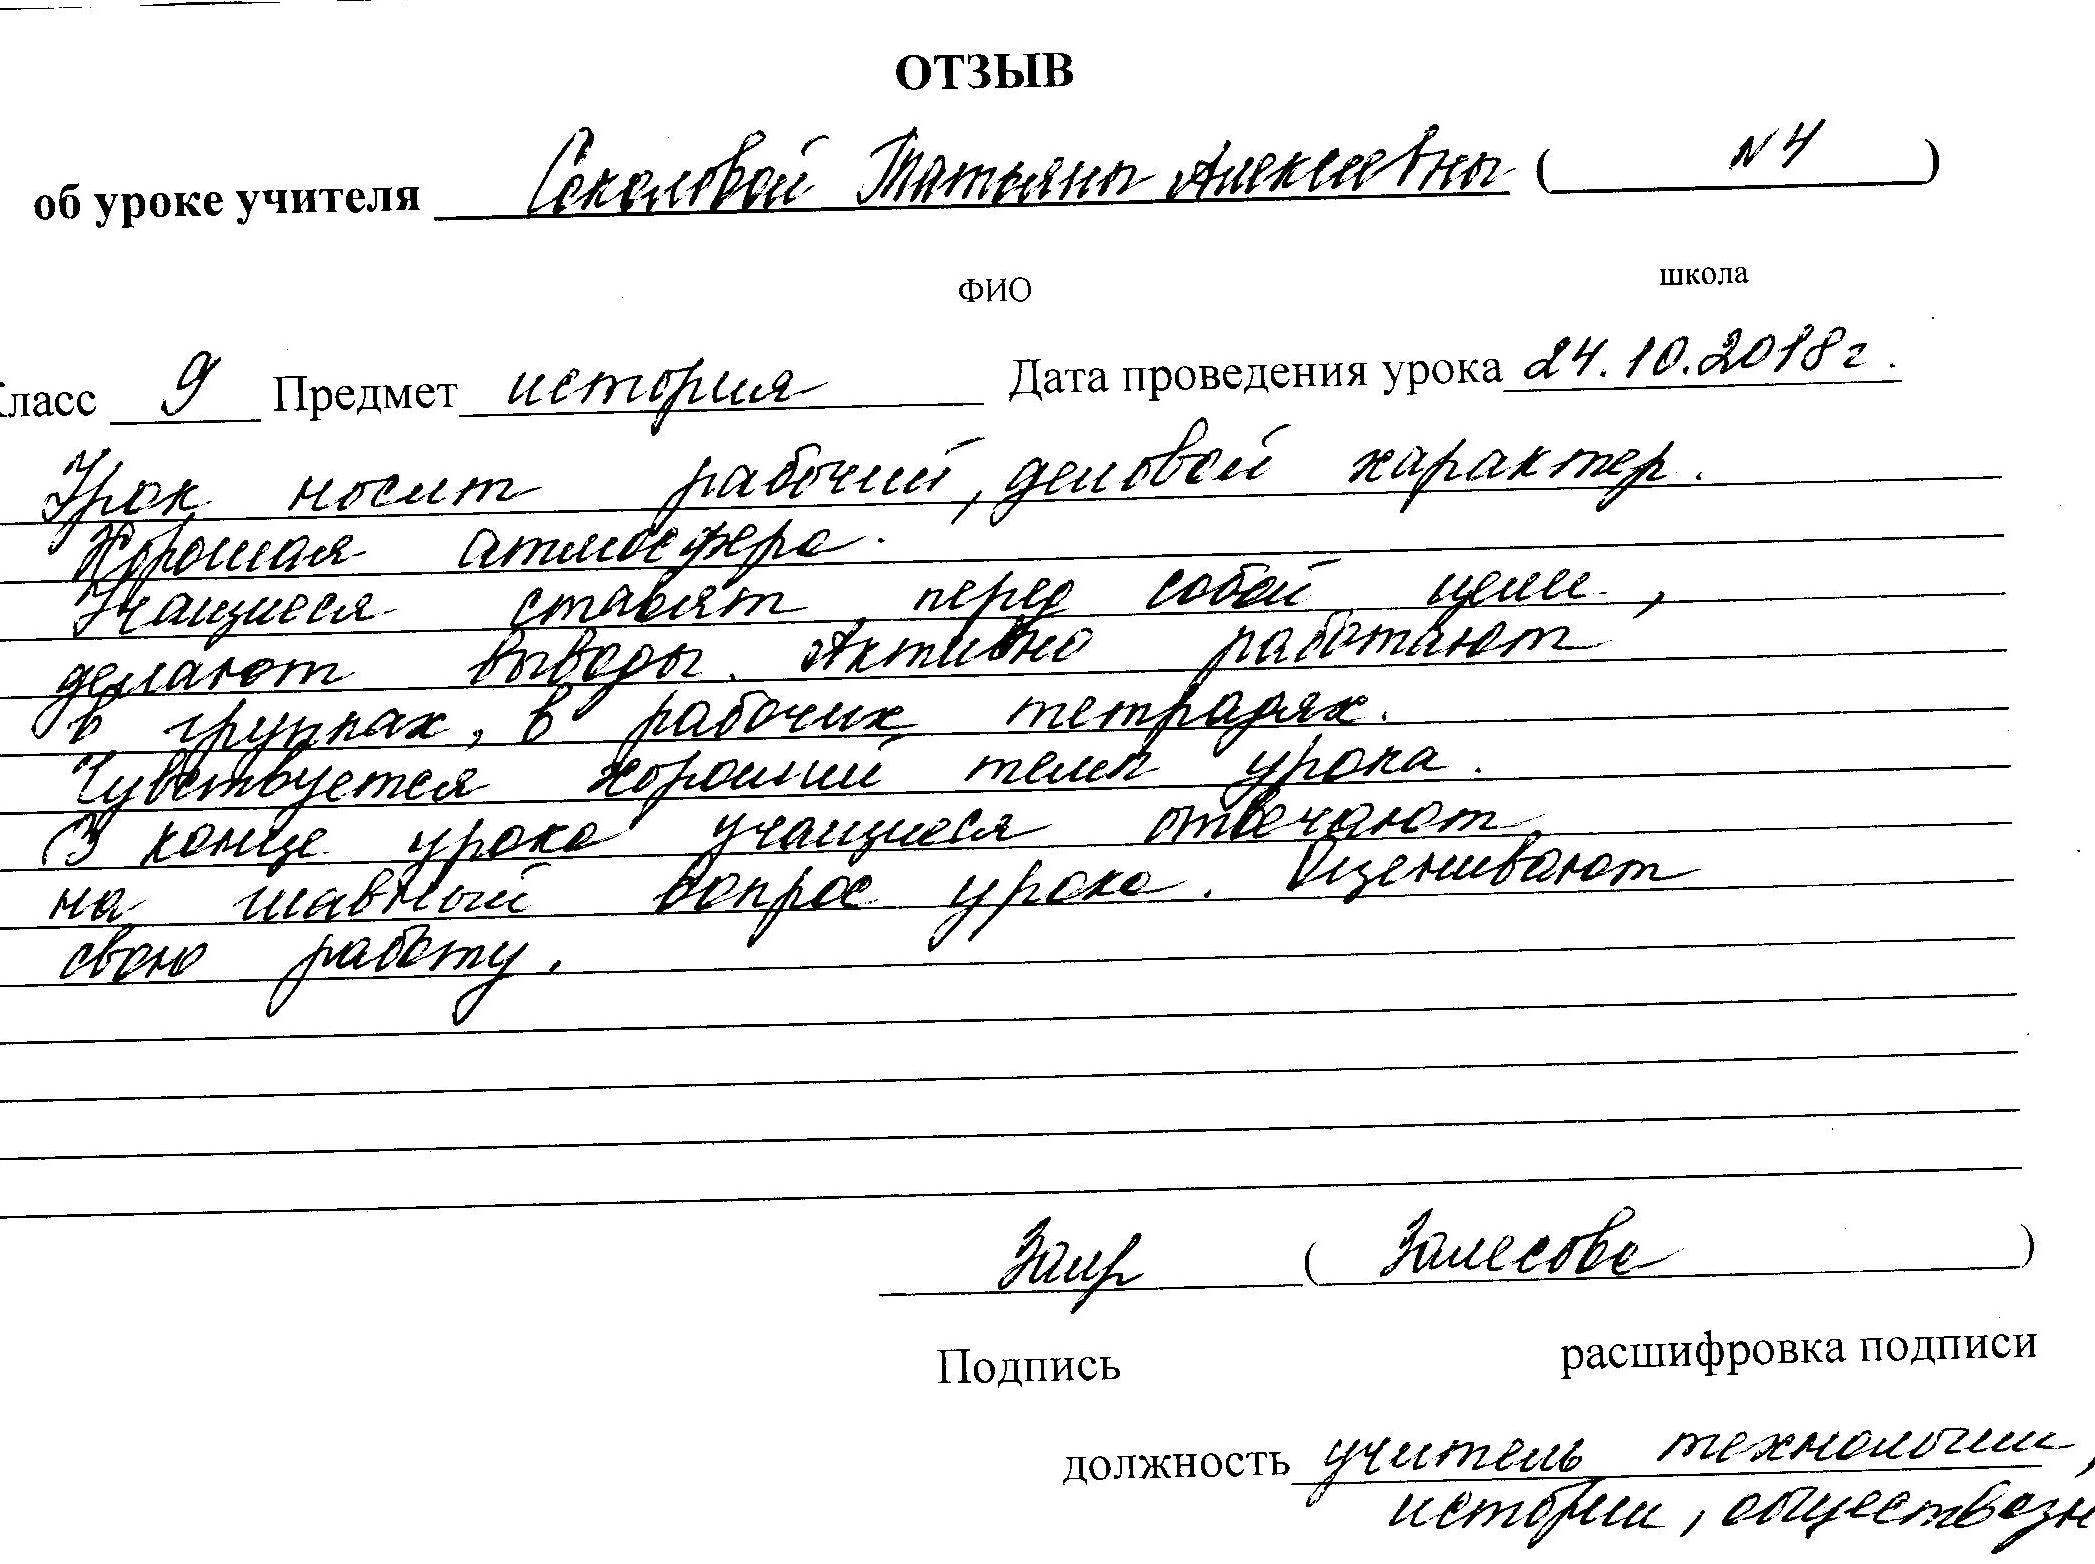 ОТЗЫВ
об уроке учителя Соколовой Татьяны Алексеевны ( №4 )
ФИО школа
класс 9 Предмет история Дата проведения урока 24.10.2018г.
Урок носит рабочий, деловой характер.
Хорошая атмосфера.
Учащиеся ставят перед собой цели,
делают выводы. Активно работают
в группах, в рабочих тетрадях.
Чувствуется хороший темп урока.
В конце урока учащиеся отвечают
на главный вопрос урока. Оценивают
свою работу.
( Залесова )
Подпись расшифровка подписи
должность учитель технологии,
истории, обществозн